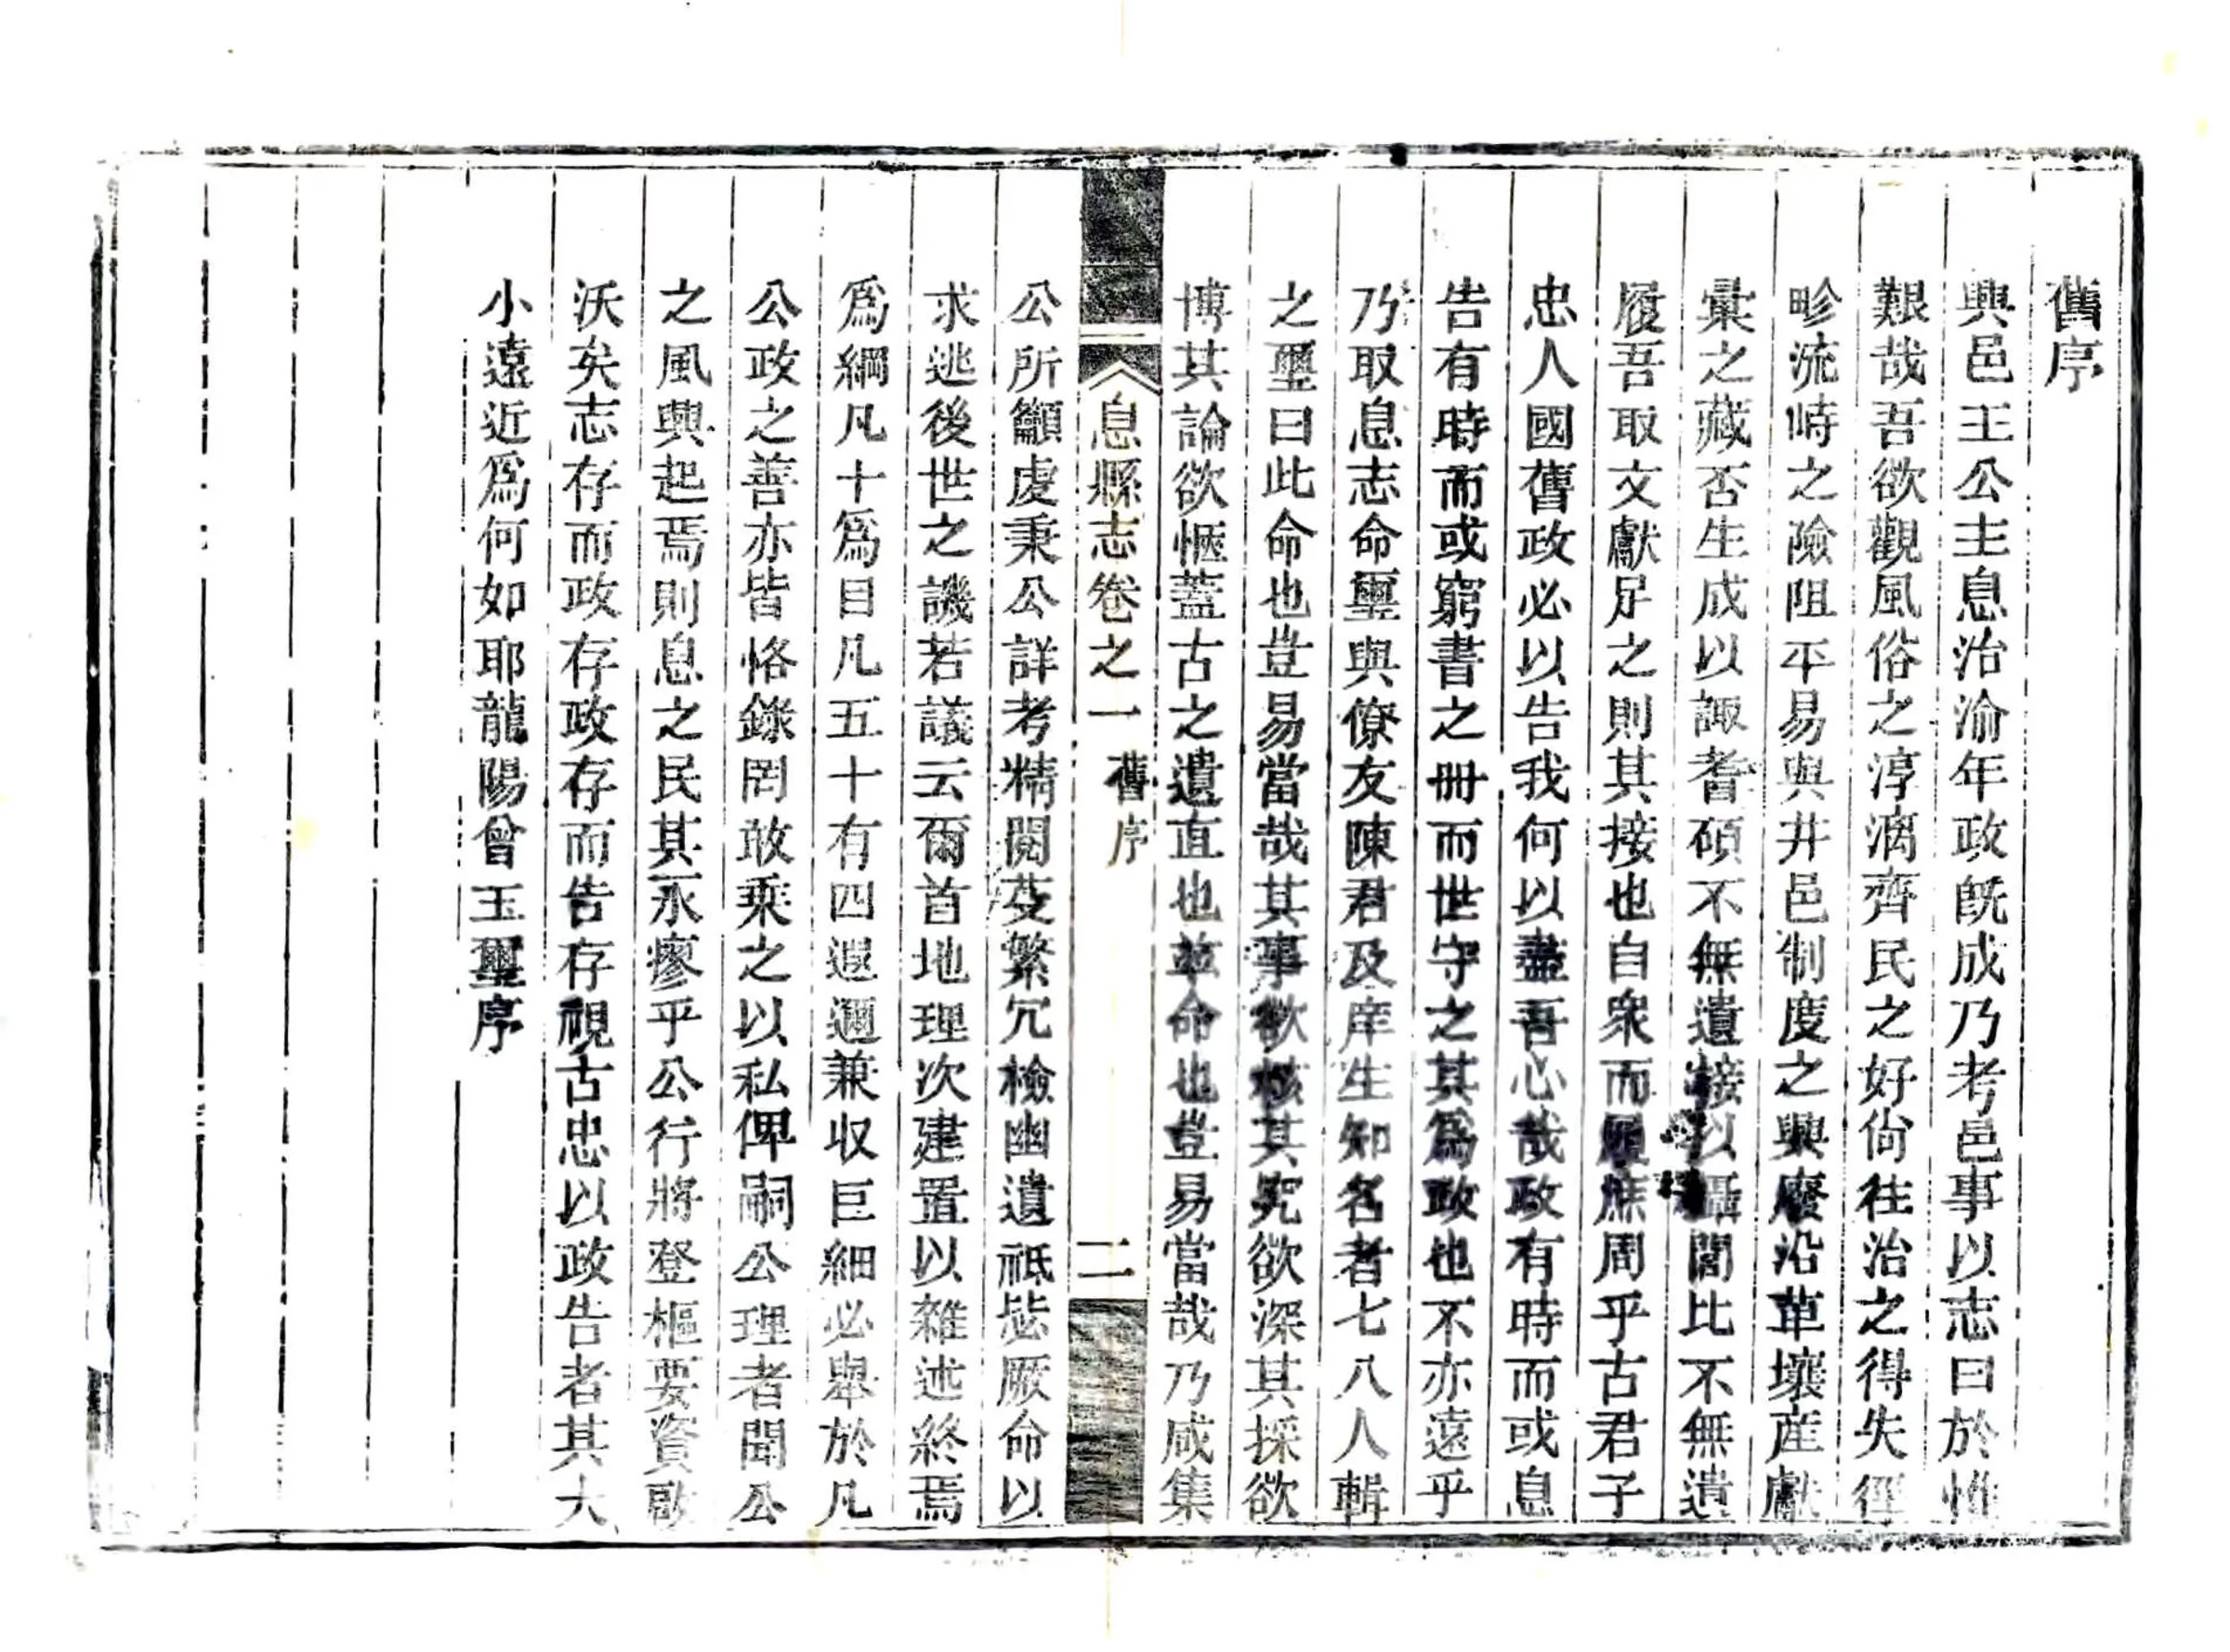 舊序
興邑王公主息治渝年政旣成乃考邑事以志曰於惟
艱哉吾欲觀風俗之淳漓齊民之好尙徃治之得失徑
畛流峙之險阻平易與井邑制度之興廢沿革壤産獻
彙之藏否生成以諏耆碩不無遺接以聞比不無遺
履吾取文獻足之則其接也自衆而履庶周乎古君子
忠人國舊政必以告我何以盡吾心哉政有時而或息
告有時而或窮書之冊而世守之其爲政也不亦遠乎
乃取息志命璽與僚友陳君及庠生知名者七八人輯
之璽曰此命也豈易當哉其事欲核其究欲深其採欲
博其論欲愜蓋古之遺直也兹命也豈易當哉乃咸集
息縣志卷之一 舊序 二
公所籲虔秉公詳考精閱芟繁冗檢幽遺祗毖厥命以
求逃後世之譏若議云爾首地理次建置以雜述終焉
爲綱凡十爲目凡五十有四遐邇兼収巨細必舉於凡
公政之善亦皆恪錄罔敢乗之以私俾嗣公理者聞公
之風興起焉則息之民其永瘳乎公行將登樞要資啟
沃矣志存而政存政存而告存視古忠以政告者其大
小遠近爲何如耶龍陽曾玉璽序